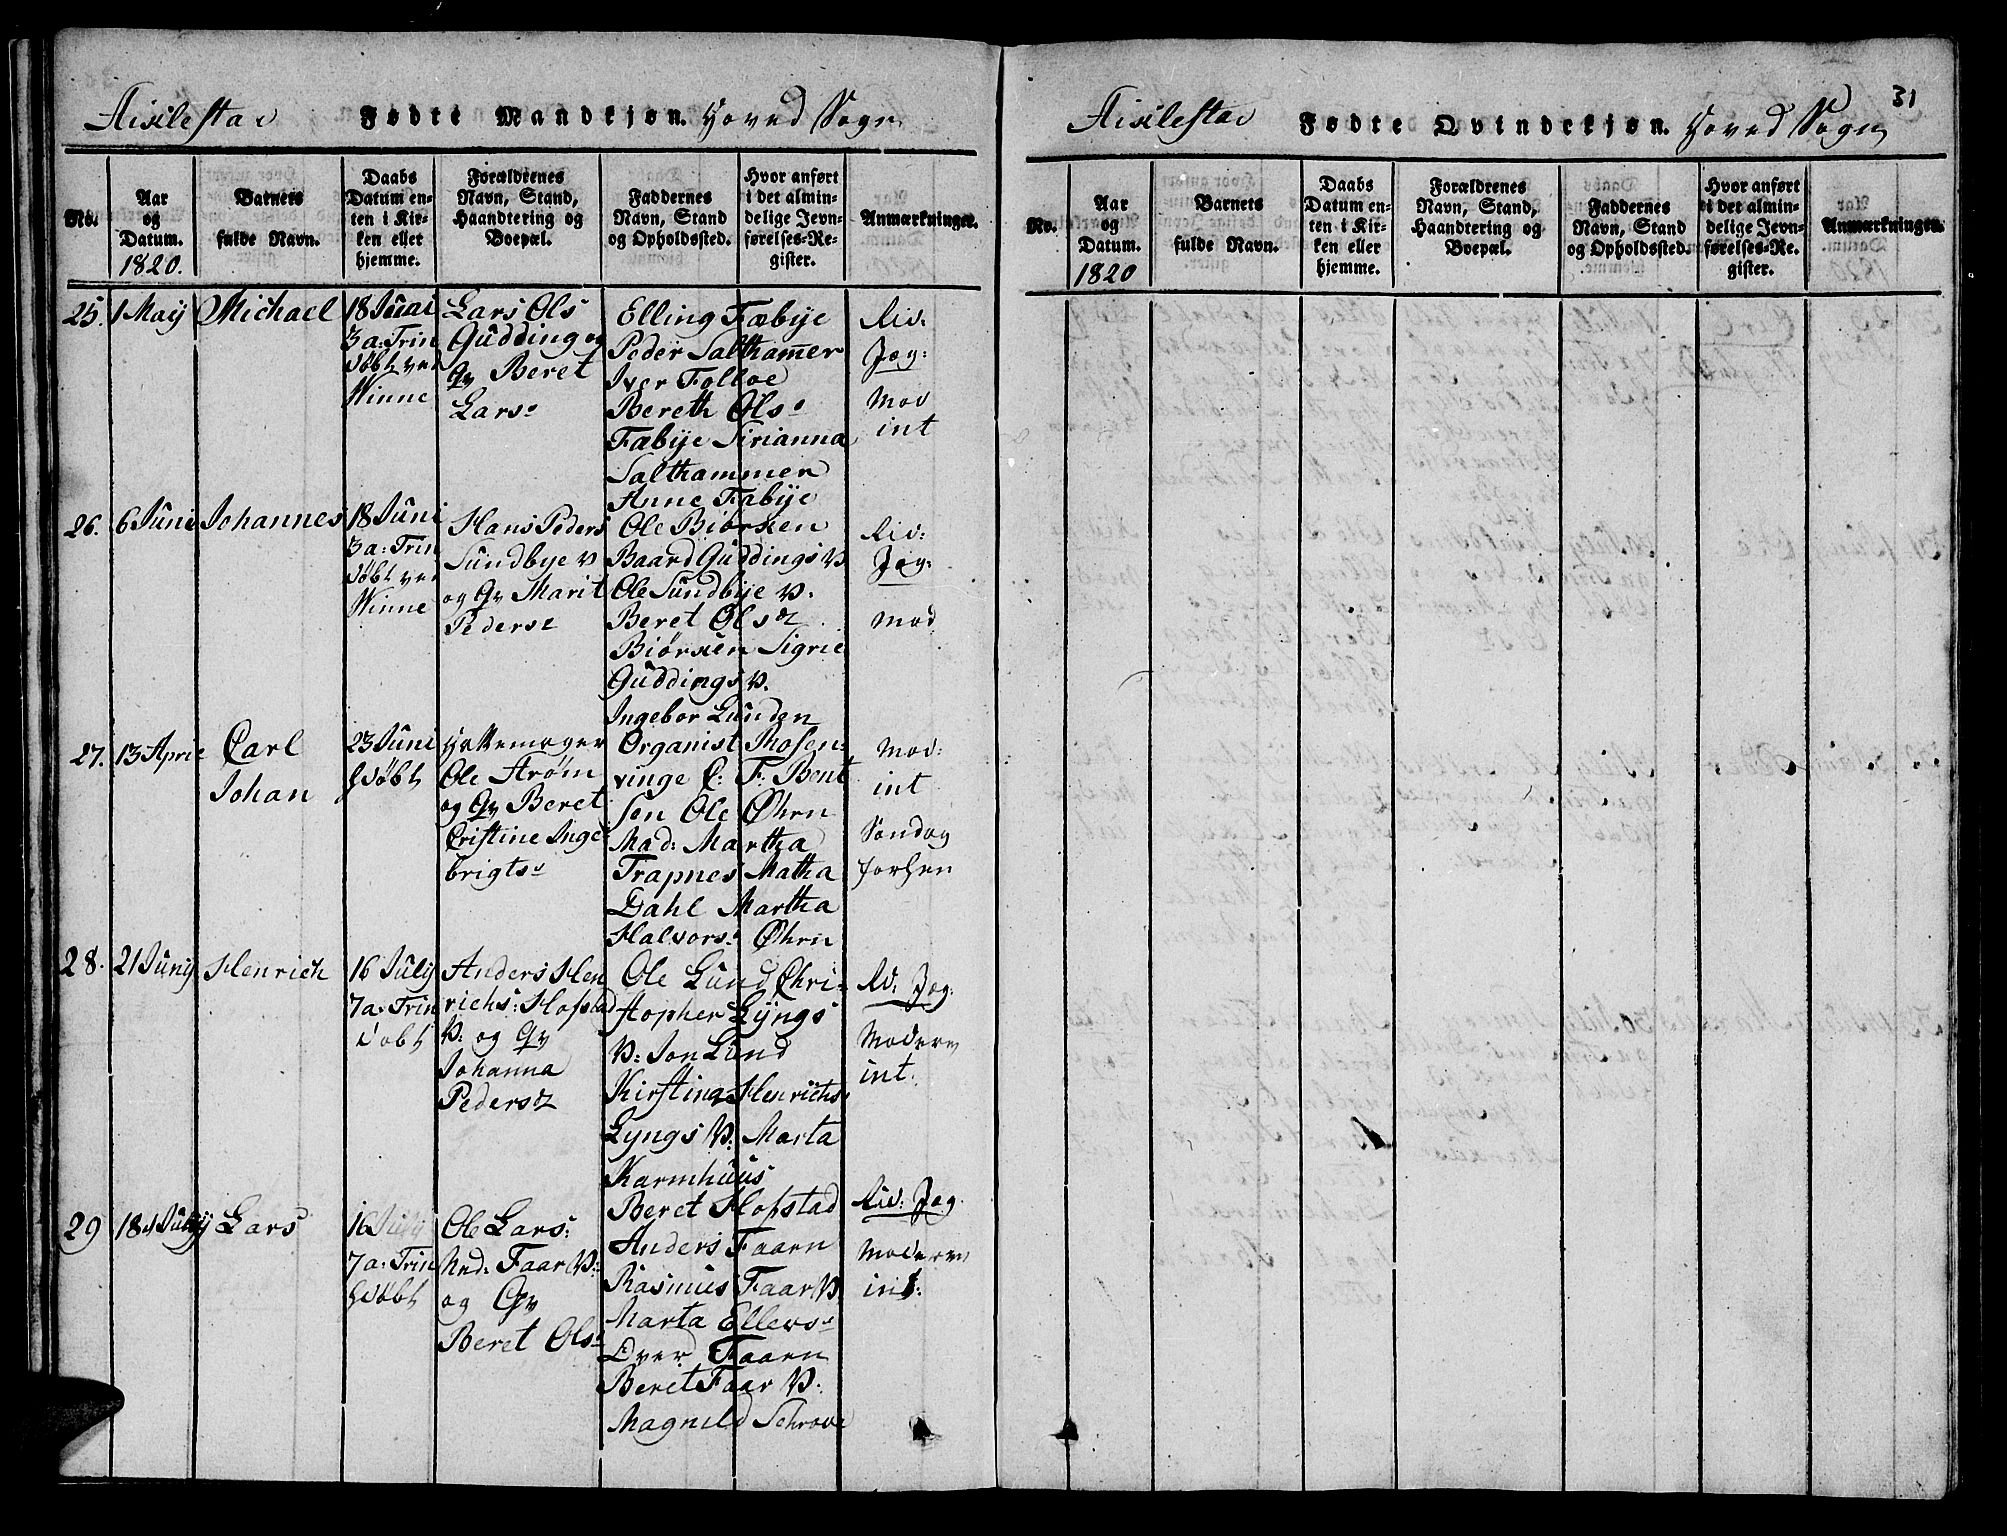 Fødte Mandkjøn. Hoved Sogn
No.
Aar
og
Datum.
1820.
Barnets
fulde Navn.
Daabs
Datum en-
ten i Kir-
ken eller
hjemme.
Forældrenes
Navn, Stand,
Haandtering og
Boepæl.
Faddernes
Navn, Stand
og Opholdssted.
Hvor anført
i det almin-
delige Jevn-
førelses-Re-
gister.
Anmærkninger.
25. 1 Maij Michael
18 Junii
3 a: Trin
døbt ved
Winne
Lars Ols
Gudding og
Qv Beret
Lars:
Elling Fæbye
Peder Salthammer
Iver Folloe
Bereth Ols:
Fæbije Sirianna
Salthammer
Anne Fæbije
int
26. 6 Juni Johannes
18 Juni
3 a: Trin
døbt ved
Winne
Hans Peders
Sundbye v
og Qv Marit
Peders
Ole Biørken
Baard Guddings v
Ole Sundbije v:
Beret Ols
Biørken Sigrie
Guddings v.
Ingebor Lunden
27. 13 April Carl
Johan
23 Juni
døbt
Ole Strøm
og Qv Beret
Cristine Inge
brigts:
Organist Rosen-
vinge C: F: Bent
sen Ole Øhrn
Mad: Martha
Trapnes Matha
Dahl Martha
Halvors: Øhrn
int
28. 21 Junij Henrich
16 Julij
7 a: Trin
døbt
Anders Hen
richs: Hofstad
v: og Qv
Johanna
Peders
Ole Lund Chri-
stopher Lyngs
v: Jon Lund
Kirstina Henrichs:
Lyngs v: Marta
Karmhuus
Beret Hofstad
int.
29 18 Julij Lars
16 Julij
7 a: Trin
døbt
Ole Lars:
Faar v:
og Qv
Beret Ols:
Anders Faarn
Rasmus Faar v
Marta Ellevs:
Over Faarn
Beret Faar v:
Magnild Schrove
int:
31
Fødte Qvindekjøn. Hoved Sogn
No.
Aar
og
Datum.
1820
Barnets
fulde Navn.
Daabs
Datum en-
ten i Kir-
ken eller
hjemme.
Forældrenes
Navn, Stand,
Haandtering og
Boepæl.
Faddernes
Navn, Stand
og Opholdssted.
Hvor anført
i det almin-
delige Jevn-
førelses-Re-
gister.
Anmærkninger.